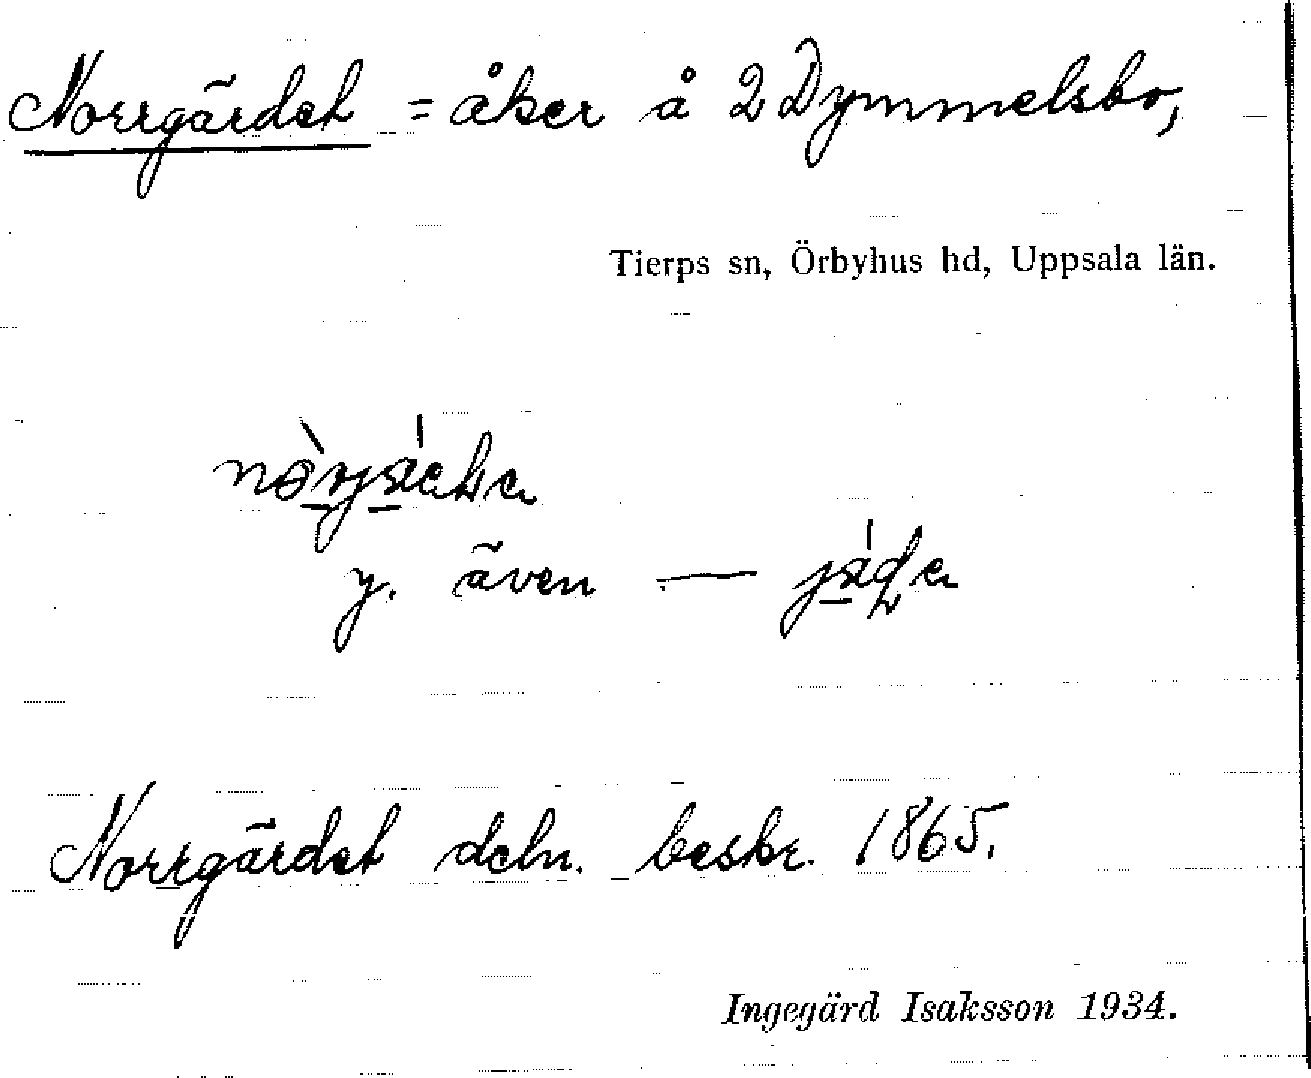 Norrgärdet = åker å 2 Dymmelsbo,
Tierps sn, Örbyhus hd, Uppsala län.
y. även —
Norrgärdet deln. beskr. 1865.
Ingegärd Isaksson 1934.